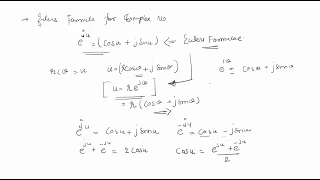 → Eulers Formula for Complex No
e^{ju} = (cosu + jsinu) <— Eulers Formulae
r∠θ = u u = (rcosθ + jsinθ) e^{jθ} = cosθ + jsinθ
[u = r e^{jθ}]
= r (cosθ + jsinθ)
e^{ju} = cosu + jsinu e^{-ju} = cosu - jsinu
e^{ju} + e^{-ju} = 2cosu cosu = \frac{e^{ju} + e^{-ju}}{2}